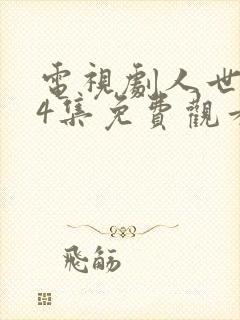 電視劇人世
4集免費觀
飛觞